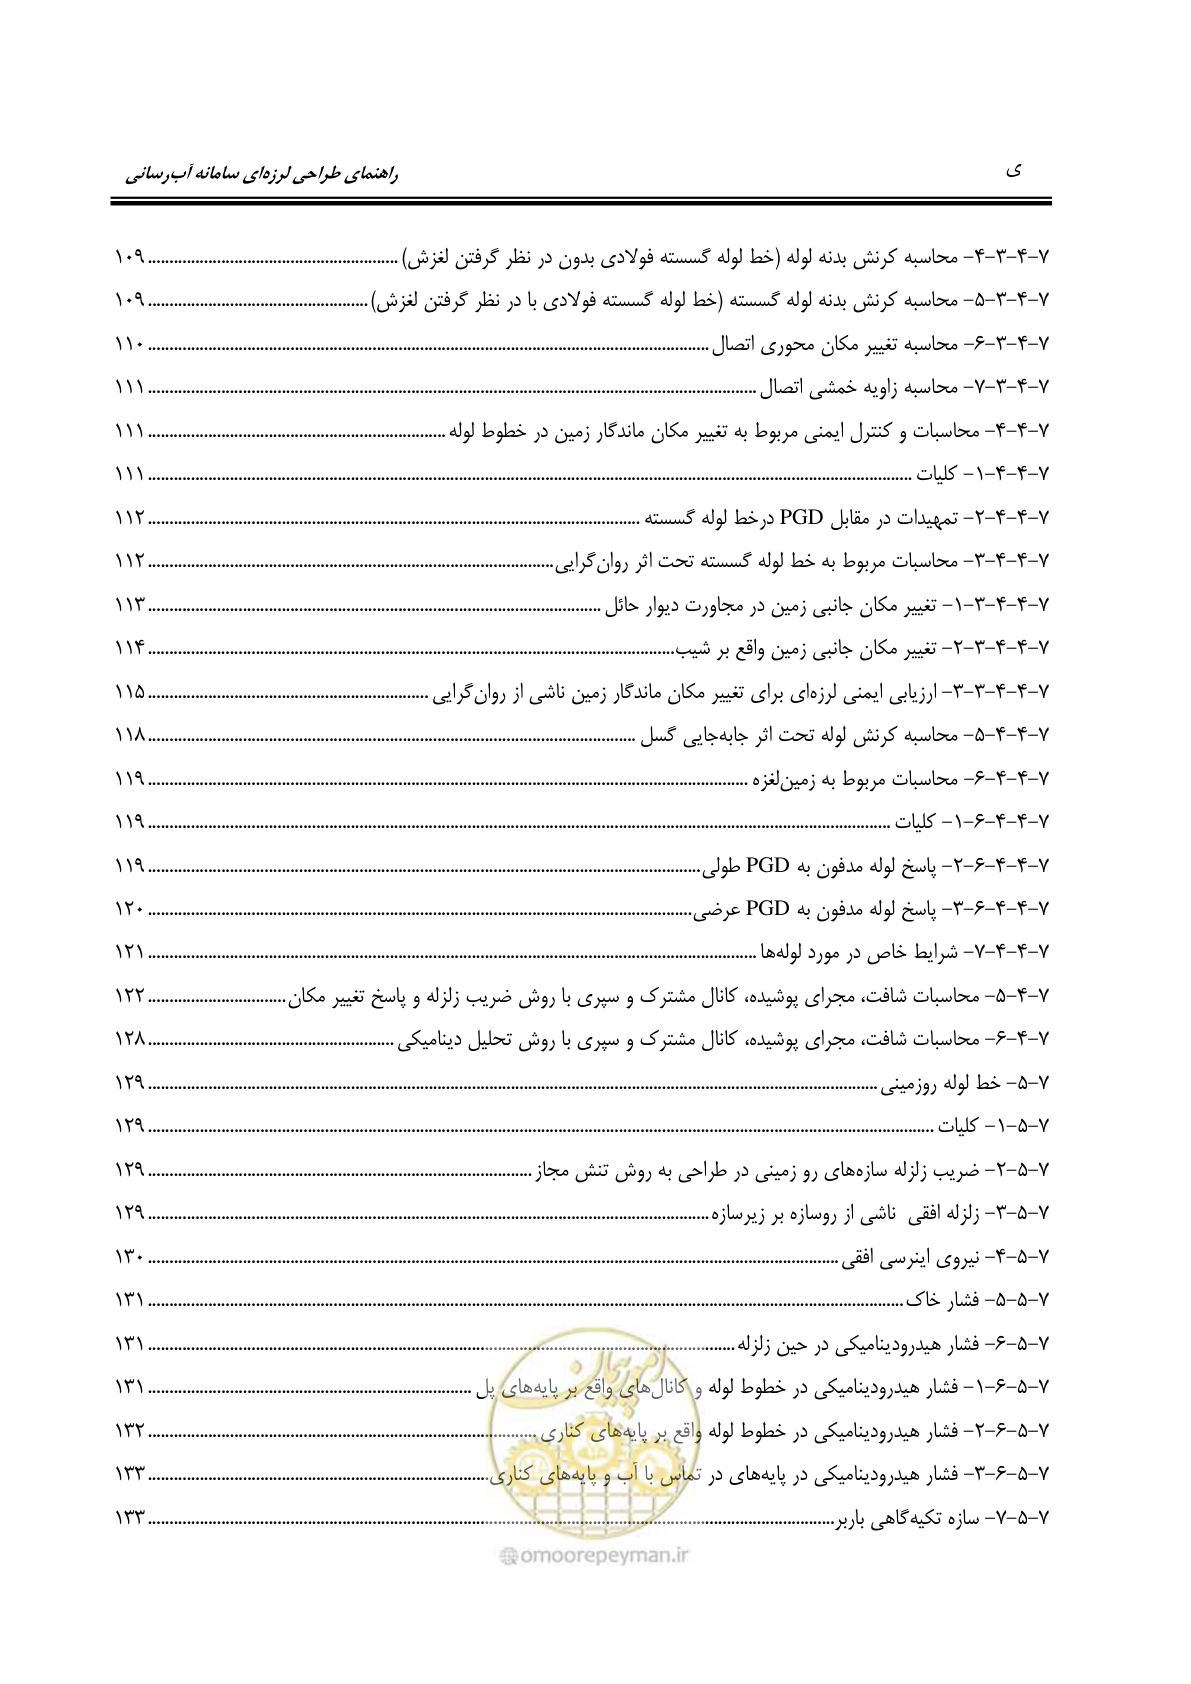 ی
راهنمای طراحی لرزه‌ای سامانه آب‌رسانی
۷-۴-۳-۴- محاسبه کرنش بدنه لوله (خط لوله گسسته فولادی بدون در نظر گرفتن لغزش) ........ ۱۰۹
۷-۴-۳-۵- محاسبه کرنش بدنه لوله گسسته (خط لوله گسسته فولادی با در نظر گرفتن لغزش) ........ ۱۰۹
۷-۴-۳-۶- محاسبه تغییر مکان محوری اتصال ........ ۱۱۰
۷-۴-۳-۷- محاسبه زاویه خمشی اتصال ........ ۱۱۱
۷-۴-۴- محاسبات و کنترل ایمنی مربوط به تغییر مکان ماندگار زمین در خطوط لوله ........ ۱۱۱
۷-۴-۴-۱- کلیات ........ ۱۱۱
۷-۴-۴-۲- تمهیدات در مقابل PGD درخط لوله گسسته ........ ۱۱۲
۷-۴-۴-۳- محاسبات مربوط به خط لوله گسسته تحت اثر روان‌گرایی ........ ۱۱۲
۷-۴-۴-۳-۱- تغییر مکان جانبی زمین در مجاورت دیوار حائل ........ ۱۱۳
۷-۴-۴-۳-۲- تغییر مکان جانبی زمین واقع بر شیب ........ ۱۱۴
۷-۴-۴-۳-۳- ارزیابی ایمنی لرزه‌ای برای تغییر مکان ماندگار زمین ناشی از روان‌گرایی ........ ۱۱۵
۷-۴-۴-۵- محاسبه کرنش لوله تحت اثر جابه‌جایی گسل ........ ۱۱۸
۷-۴-۴-۶- محاسبات مربوط به زمین‌لغزه ........ ۱۱۹
۷-۴-۴-۶-۱- کلیات ........ ۱۱۹
۷-۴-۴-۶-۲- پاسخ لوله مدفون به PGD طولی ........ ۱۱۹
۷-۴-۴-۶-۳- پاسخ لوله مدفون به PGD عرضی ........ ۱۲۰
۷-۴-۴-۷- شرایط خاص در مورد لوله‌ها ........ ۱۲۱
۷-۴-۵- محاسبات شافت، مجرای پوشیده، کانال مشترک و سپری با روش ضریب زلزله و پاسخ تغییر مکان ........ ۱۲۲
۷-۴-۶- محاسبات شافت، مجرای پوشیده، کانال مشترک و سپری با روش تحلیل دینامیکی ........ ۱۲۸
۷-۵- خط لوله روزمینی ........ ۱۲۹
۷-۵-۱- کلیات ........ ۱۲۹
۷-۵-۲- ضریب زلزله سازه‌های رو زمینی در طراحی به روش تنش مجاز ........ ۱۲۹
۷-۵-۳- زلزله افقی ناشی از روسازه بر زیرسازه ........ ۱۲۹
۷-۵-۴- نیروی اینرسی افقی ........ ۱۳۰
۷-۵-۵- فشار خاک ........ ۱۳۱
۷-۵-۶- فشار هیدرودینامیکی در حین زلزله ........ ۱۳۱
۷-۵-۶-۱- فشار هیدرودینامیکی در خطوط لوله و کانال‌های واقع بر پایه‌های پل ........ ۱۳۱
۷-۵-۶-۲- فشار هیدرودینامیکی در خطوط لوله واقع بر پایه‌های کناری ........ ۱۳۲
۷-۵-۶-۳- فشار هیدرودینامیکی در پایه‌های در تماس با آب و پایه‌های کناری ........ ۱۳۳
۷-۵-۷- سازه تکیه‌گاهی باربر ........ ۱۳۳
امور پیمان
@omoorepeyman.ir